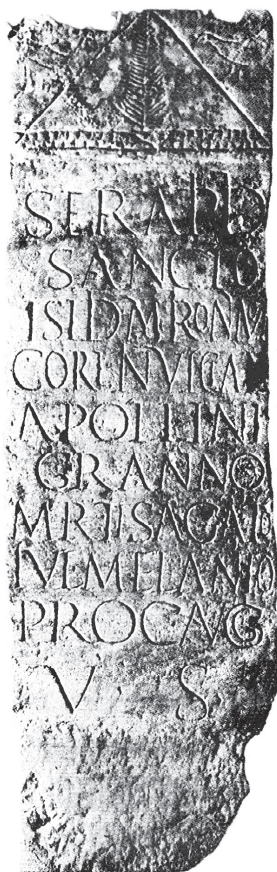 SERAPIDI
SANCTO
ISIDI MIRONYM
CORE INVICTA
APOLLINI
GRANNO
MARTI SAGAT
IVL MELANIO
PROC AVG
V S